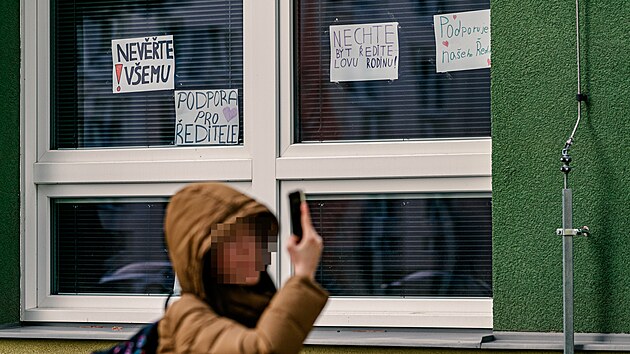 NEVĚŘTE
! VŠEMU
PODPORA
PRO
ŘEDITELE
NECHTE
BÝT ŘEDITE
LOVU RODINU!
Podporuje
našeho Ředi